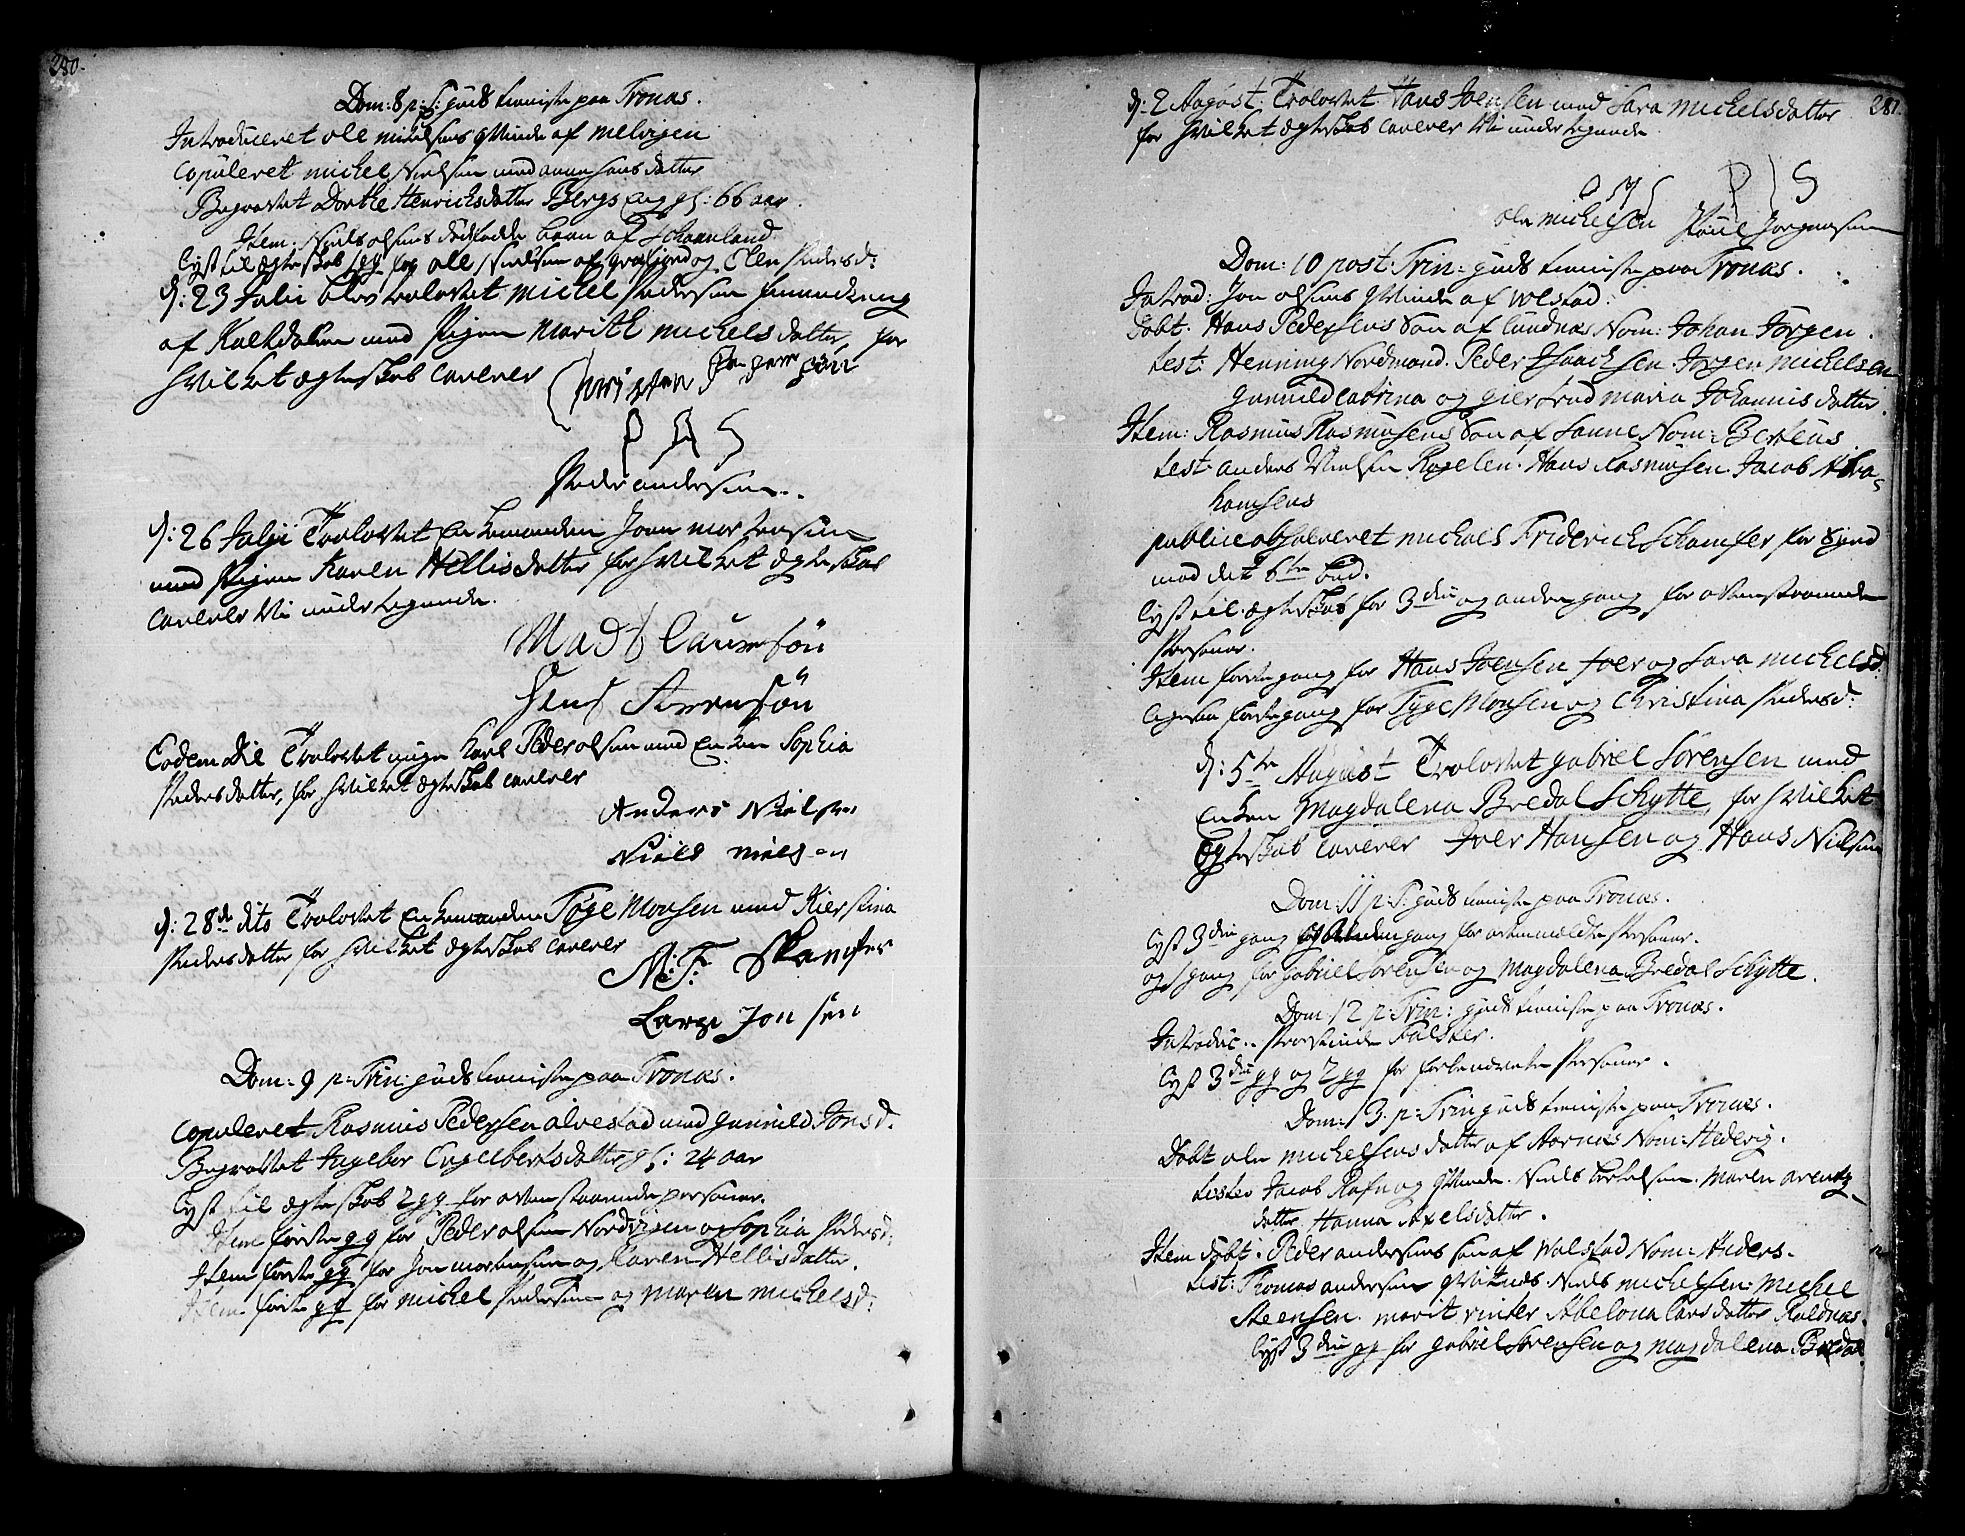 280.
Dom: 8 p: T: Guds tieniste paa Tronæs.
Introduceret Ole Michelsens Qvinde af Melvigen
Copuleret Michel Nielsen med Anna Hansdatter
Begravet Dorthe Henrichsdatter Bergs Eng gl: 66 aar.
Item: Niels Olsens dødfødde barn af Schaanland.
Lyst til ægteskab for Ole Nielsen af og Elen Pedersd:
d: 23 Julii blev trolovet Michel Pedersen
af Kaltdalen med Pigen Marith Michelsdatter, for
hvilket ægteskab caverer Christen
P A S
Peder Andersen.
d: 26 Julii Trolovet Enkemanden Joen Mortensen
med Pigen Karen Hellisdatter for hvilket ægteskab
caverer Vi undertegnede.
Mads Laursøn
Jens Sørensøn
Eodem die Trolovet unge Karl Peder Olsen med Enken Sophia
Pedersdatter, for hvilket ægteskab caverer
Anders Nielsen
Niels Nielsen
d: 28de dito Trolovet Enkemanden Tøge Monsen med Kierstina
Pedersdatter for hvilket ægteskab caverer
M: F: Skancker
Lars Jonsen
Dom: 9 p: Trin: Guds tieniste paa Tronæs.
Copuleret Rasmus Pedersen Alvestad med Gunnild Jonsd.
Begravet Ingebor Engelbertsdatter gl: 24 aar
Lyst til ægteskab 2 gg for ovenstaaende personer.
Item første gg for Peder Olsen Nordvigen og Sophia Pedersd:
Item første gg for Jon Mortensen og Karen Hellisdatter.
Item første gg for Michel Pedersen og Maren Michelsd:
281.
d: 2 August: Trolovet Hans Joensen med Sara Michelsdatter
for hvilket ægteskab caverer Vi undertegnede
O M S P I S
Ole Michelsen Poul Jørgensen
Dom: 10 post: Trin: Guds tieniste paa Tronæs.
Introd: Jon Olsens Qvinde af Volstad.
Døbt. Hans Pedersens Søn af Sundnæs Nom: Johan Jørgen.
test: Henning Nordmand. Peder Isaachsen. Jørgen Michelsen
Gunnild Catrina og Giertrud Maria Johannisdatter.
Item: Rasmus Rasmusens Søn af Sanne Nom: Berteus.
test: Anders Nielsen Røgelen. Hans Rasmusen. Jacob Abra-
hamsens
publice absolveret Michaels Friderich Schancker for Synd
mod det 6te bud.
Lyst til ægteskab for 3die og anden gang for ovenstaaende
Personer.
Item første gang for Hans Joensen Foer og Sara Michelsd:
ligesaa første gang for Tyge Monsen og Christina Pedersd:
d: 5te August Trolovet Gabriel Sørensen med
Enken Magdalena Bredal Schytte, for hvilket
Ægteskab caverer Iver Hansen og Hans Nielsen
Dom: 11 p: T: Guds tieniste paa Tronæs.
Lyst 3die gang og Anden gang for ovenmeldte Personer.
og 1 gang for Gabriel Sørensen og Magdalena Bredal Schytte.
Dom: 12 p: Trin: Guds tieniste paa Tronæs.
Introduc.. Præstinde Falster.
Lyst 3die gg og 2 gg for forbenævnte Personer.
Dom: 13. p: Trin Guds tieniste paa Tronæs.
Døbt Ole Michelsens datter af Aarnæs Nom: Hedevig.
testes Jacob Rafn og Qvinde. Niels Torkelsen. Maren Arentz
datter. Hanna Axelsdatter.
Item døbt: Peder Andersens Søn af Volstad Nom: Anders.
test: Thomas Andersen Niels Michelsen. Michel
Steensen. Marit Vinter Abelona Larsdatter Røldnæs.
Lyst 3die gg for Gabriel Sørensen og Magdalena Bredal